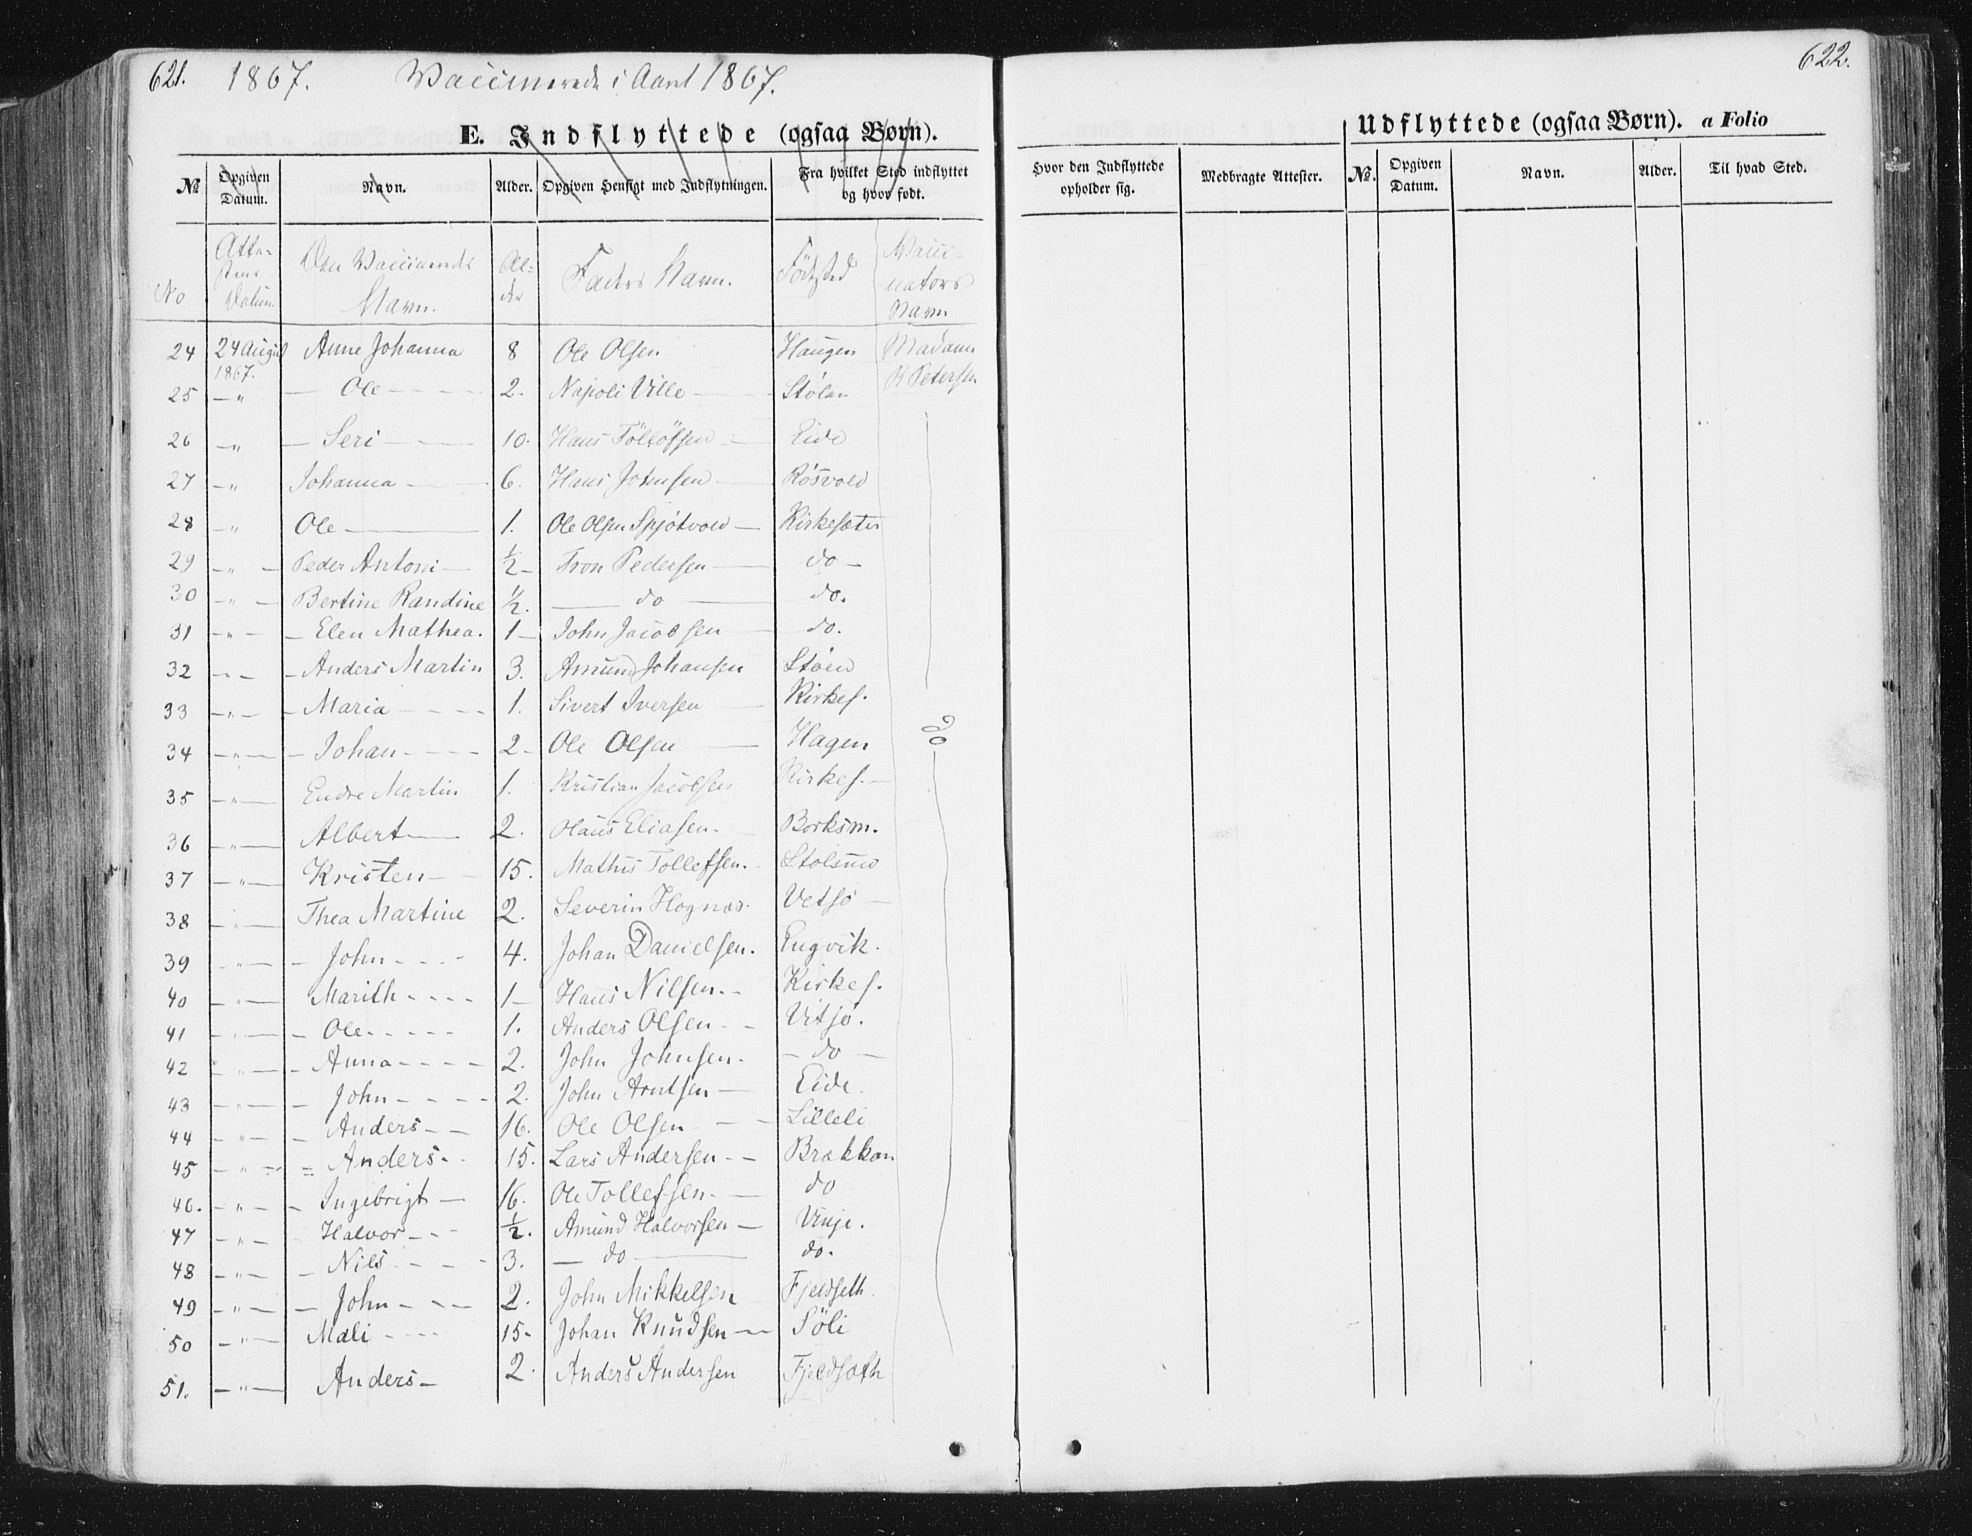 621. 1867. Vaccinerede i Aaret 1867.
622.
E. Indflyttede (ogsaa Børn).
Udflyttede (ogsaa Børn). a Folio
№ Opgiven Datum. Navn. Alder. Opgiven Hensigt med Indflytningen. Fra hvilket Sted indflyttet og hvor født. Hvor den Indflyttede opholder sig. Medbragte Attester. №. Opgiven Datum. Navn. Alder. Til hvad Sted.
No Attestens Datum. Den Vaccinerede Navn. Alder Faders Navn. Födested Vaccinators Navn
24 24 August 1867. Anne Johanna 8 Ole Olsen Haugen Madam
25 — " — Ole — 2. Napoli Ville — Stølan B Petersen
26 — " — Seri — 10. Hans Eide
27 — " Johanna — 6. Hans Johnsen — Røsvold
28 — " Ole — 1. Ole Olsen Spjøtvold — Kirkesæter
29 — " — Peder Antoni — ½ — Tron Pedersen — do —
30 — " — Bertine Randine ½. — do — do.
31 — " — Elen Mathea. 1 — John Jacobsen — do.
32 — " — Anders Martin 3. Amund Johansen Støen
33 — " — Maria — 1. Sivert Iversen — Kirkes.
34 — " — Johan — 2 — Ole Olsen — Hagen do
35 — " — Endre Martin 1. Kristian Jacobsen Kirkes. —
36 — " — Albert — 2. Claus Eliasen. — Borksm.
37 — " — Kristen — 15. Mathis Tollefsen. Stolsmo
38 — " — Thea Martine 2. Severin Hognæs. Vetsø —
39 — " — John — 4. Johan Danielsen. Engvik.
40 — " — Marith — 1 — Hans Nilsen. — Kirkes.
41 — " — Ole — 1. Anders Olsen — Vitsø.
42 — " — Anna — 2. John Johnsen. — do —
43 — " — John — 2. John Arntsen — Eide.
44 — " — Anders — 16. Ole Olsen — Lilleli
45 — " — Anders. 15. Lars Andersen — Brækkan
46. — " — Ingebrigt — 16. Ole Tollefsen. — do
47 — " — Halvor — ½. Amund Halvorsen — Vinje.
48 — " — Nils — 3. — do — do.
49 — " — John — 2. John Mikkelsen Fjeldseth.
50 — " — Mali — 15. Johan Knudsen — Söli
51. — " — Anders — 2. Anders Andersen Fjeldsæth